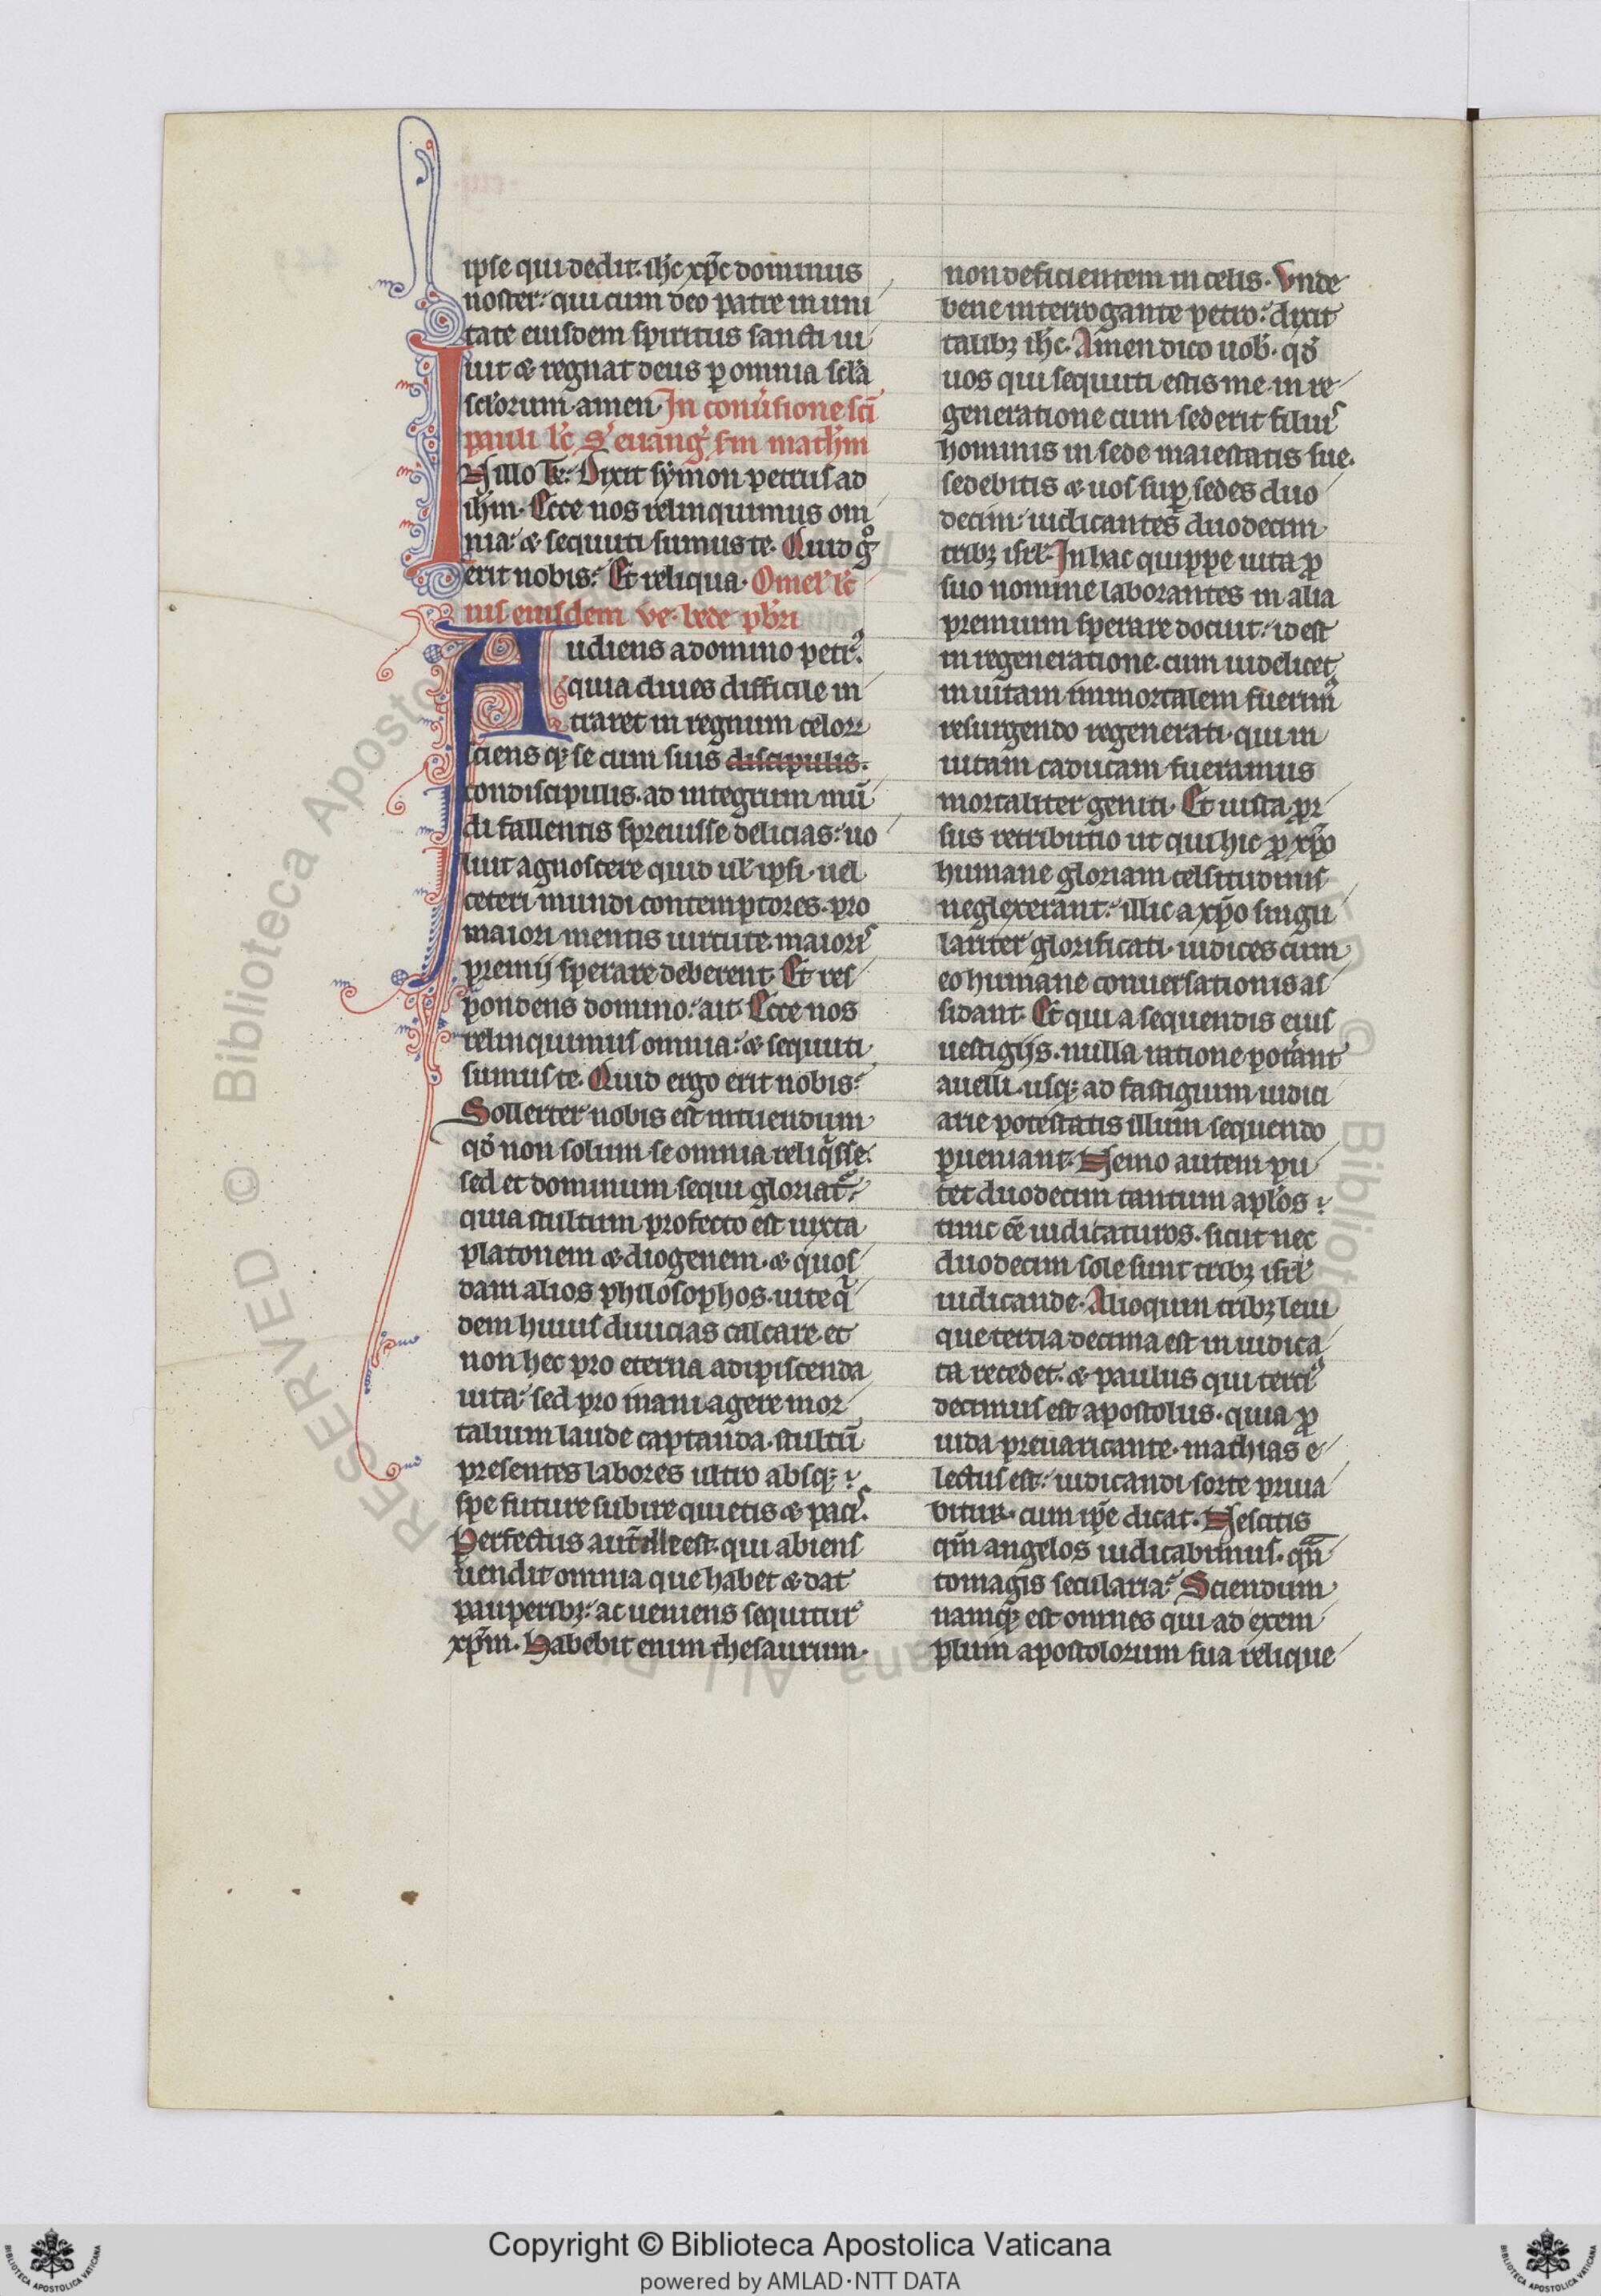 ipse qui dedit. ih̅c xp̅c dominus
noster. qui cum deo patre in uni
tate eiusdem spiritus sancti ui
uit & regnat deus p̱ omnia sc̅la
sc̅lorum. amen. In conu̅sione sc̅i
pauli lc̅ s' euang̅. s̅m math̅m
IN illo t̅e. Dixit symon petrus ad
ih̅m. Ecce nos relinquimus om
nia. & sequuti sumus te. Quid gͦ
erit nobis. Et reliqua. Omel' lc̅
nis eiusdem ve. bede pb̅ri
Audiens a domino petrꝰ.
quia diues difficile in
traret in regnum celoꝝ
sciens qꝫ se cum suis discipulis.
condiscipulis. ad integrum mu̅
di fallentis spreuisse delicias. uo
luit agnoscere quid ul' ipsi. uel
ceteri mundi contemptores. pro
maiori mentis uirtute. maioris
premij sperare deberent. Et res
pondens domino. ait. Ecce nos
relinquimus omnia. & sequuti
sumus te. Quid ergo erit nobis.
Sollerter nobis est intuendum
qd̅ non solum se omnia reliq̅sse.
sed et dominum sequi gloriat᷑.
quia stultum profecto est iuxta
platonem & diogenem. & quos
dam alios philosophos. uite q̅
dem huius diuicias calcare. et
non hec pro eterna adipiscenda
uita. sed pro inani agere mor
talium laude captanda. stultu̅
presentes labores ultro absqꝫ
spe future subire quietis & pacis.
Perfectus aut̅ ille est. qui abiens
uendit omnia que habet & dat
pauperibꝫ. ac ueniens sequitur
xp̅m. Habebit enim thesaurum.
non deficientem in celis. Vnde
bene interrogante petro. dixit
talibꝫ ih̅c. Amen dico uob̅. qd̅
uos qui sequuti estis me. in re
generatione cum sederit filius
hominis in sede maiestatis sue.
sedebitis & uos sup̱ sedes duo
decim. iudicantes duodecim
tribꝫ isrl̅. In hac quippe uita ꝓ
suo nomine laborantes in alia
premium sperare docuit. id est
in regeneratione. cum uidelicet
in uitam immortalem fuerimꝰ
resurgendo regenerati. qui in
uitam caducam fueramus
mortaliter geniti. Et iusta pr
sus retributio ut qui hic ꝓ xp̅o
humane gloriam celsitudinis
neglexerant. illic a xp̅o singu
lariter glorificati. iudices cum
eo humane conuersationis as
sidant. Et qui a sequendis eius
uestigijs. nulla ratione poterant
auelli. usqꝫ ad fastigium iudici
arie potestatis illum sequendo
p̱ueniant. Nemo autem pu
tet duodecim tantum apl̅os
tunc ee̅ iudicaturos. sicut nec
duodecim sole sunt tribꝫ isrl̅
iudicande. Alioquin tribꝫ leui
que tercia decima est iniudica
ta recedet. & paulus qui terciꝰ
decimus est apostolus. quia ꝓ
iuda preuaricante. mathias e
lectus est. iudicandi sorte priua
bitur. cum ip̅e dicat. Nescitis
qm̅ angelos iudicabimus. qn̅
tomagis secularia. Sciendum
namqꝫ est omnes qui ad exem
plum apostolorum sua relique
RESERVED © Biblioteca Aposto
Copyright © Biblioteca Apostolica Vaticana
powered by AMLAD·NTT DATA